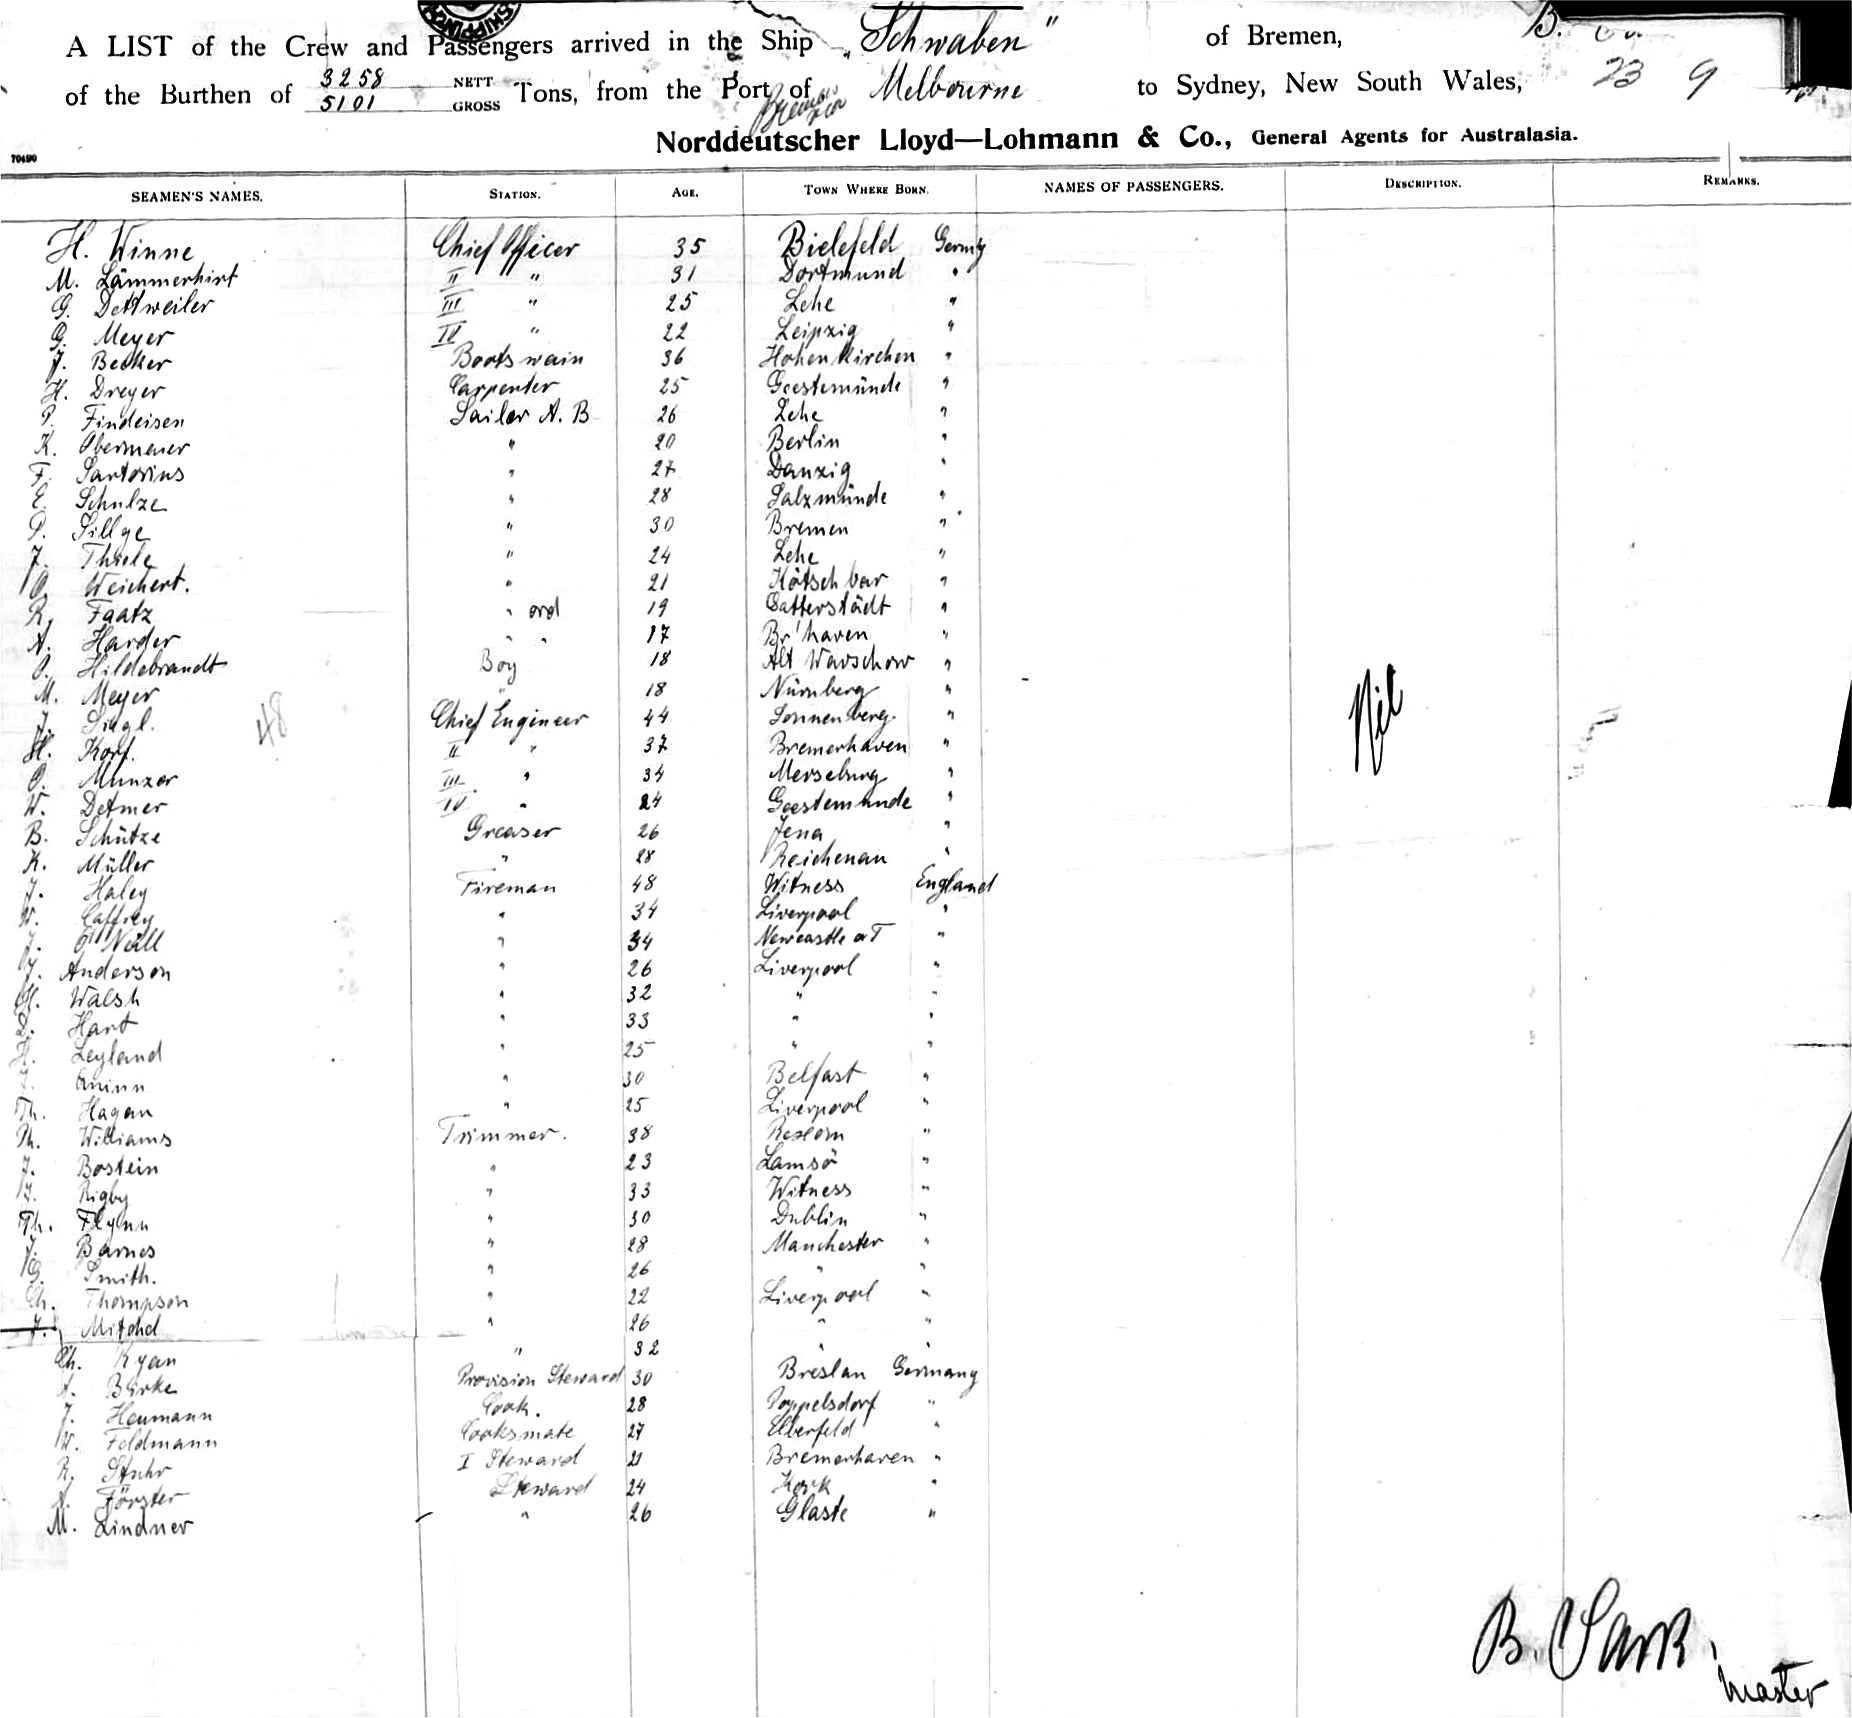 SHIPPING
A LIST of the Crew and Passengers arrived in the Ship „Schwaben" of Bremen,
of the Burthen of 3258 NETT 5101 GROSS Tons, from the Port of Melbourne to Sydney, New South Wales, 23 9
Bremen
Norddeutscher Lloyd—Lohmann & Co., General Agents for Australasia.
70490
SEAMEN'S NAMES. STATION. AGE. TOWN WHERE BORN. NAMES OF PASSENGERS. DESCRIPTION. REMARKS.
H. Winne Chief Officer 35 Bielefeld Germy
M. Lämmerhirt II " 31 Dortmund "
G. Dettweiler III " 25 Lehe "
G. Meyer IV " 22 Leipzig "
J. Becker Bootswain 36 Hohenkirchen "
H. Dreyer Carpenter 25 Geestemünde "
P. Findeisen Sailor A. B 26 Lehe "
K. Obermeier " 20 Berlin "
F. Sartorius " 27 Danzig "
E. Schulze " 28 Salzmünde "
P. Sillge " 30 Bremen "
J. Thiele " 24 Lehe "
O. Weichert. " 21 Kötschbar "
R. Faatz " ord 19 Gatterstädt "
A. Harder " " 17 Br'haven "
O. Hildebrandt Boy 18 Alt Warschow "
M. Meyer " 18 Nürnberg "
J. Siegl. Chief Engineer 44 Sonnenberg. "
H. Korf. II " 37 Bremerhaven "
O. Münzer III " 34 Merseburg "
W. Detmer IV " 24 Geestemunde "
B. Schütze Greaser 26 Jena "
K. Müller " 28 Reichenau "
J. Haley Fireman 48 Witness England
W. Caffrey " 34 Liverpool "
J. O'Neill " 34 Newcastle o T "
J. Anderson " 26 Liverpool "
H. Walsh " 32 " "
Hart " 33 " "
H. Leyland " 25 " "
Quinn " 30 Belfast "
Th. Hagan " 25 Liverpool "
Th. Williams Trimmer. 38 "
J. Bostein " 23 Lamsö "
J. Rigby " 33 Witness "
Th. Flynn " 30 Dublin "
J. Barnes " 28 Manchester "
G. Smith. " 26 " "
Ch. Thompson " 22 Liverpool "
J. Mitchel " 26 " "
Ch. Ryan " 32 " "
A. Birke Provision Steward 30 Breslau Germany
J. Heumann Cook. 28 Poppelsdorf "
W. Feldmann Cooksmate 27 Elberfeld "
R. Stuhr I Steward 21 Bremerhaven "
A. Förster Steward 24 Kork "
M. Lindner " 26 Glaste "
48
Nil
B.
master